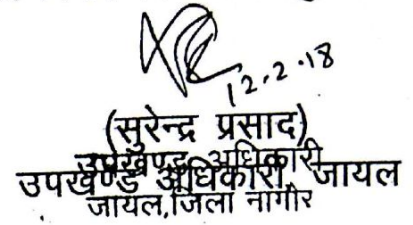 12.2.18
(सुरेन्द्र प्रसाद)
उपखण्ड अधिकारी
उपखण्ड अधिकारी, जायल
जायल, जिला नागौर